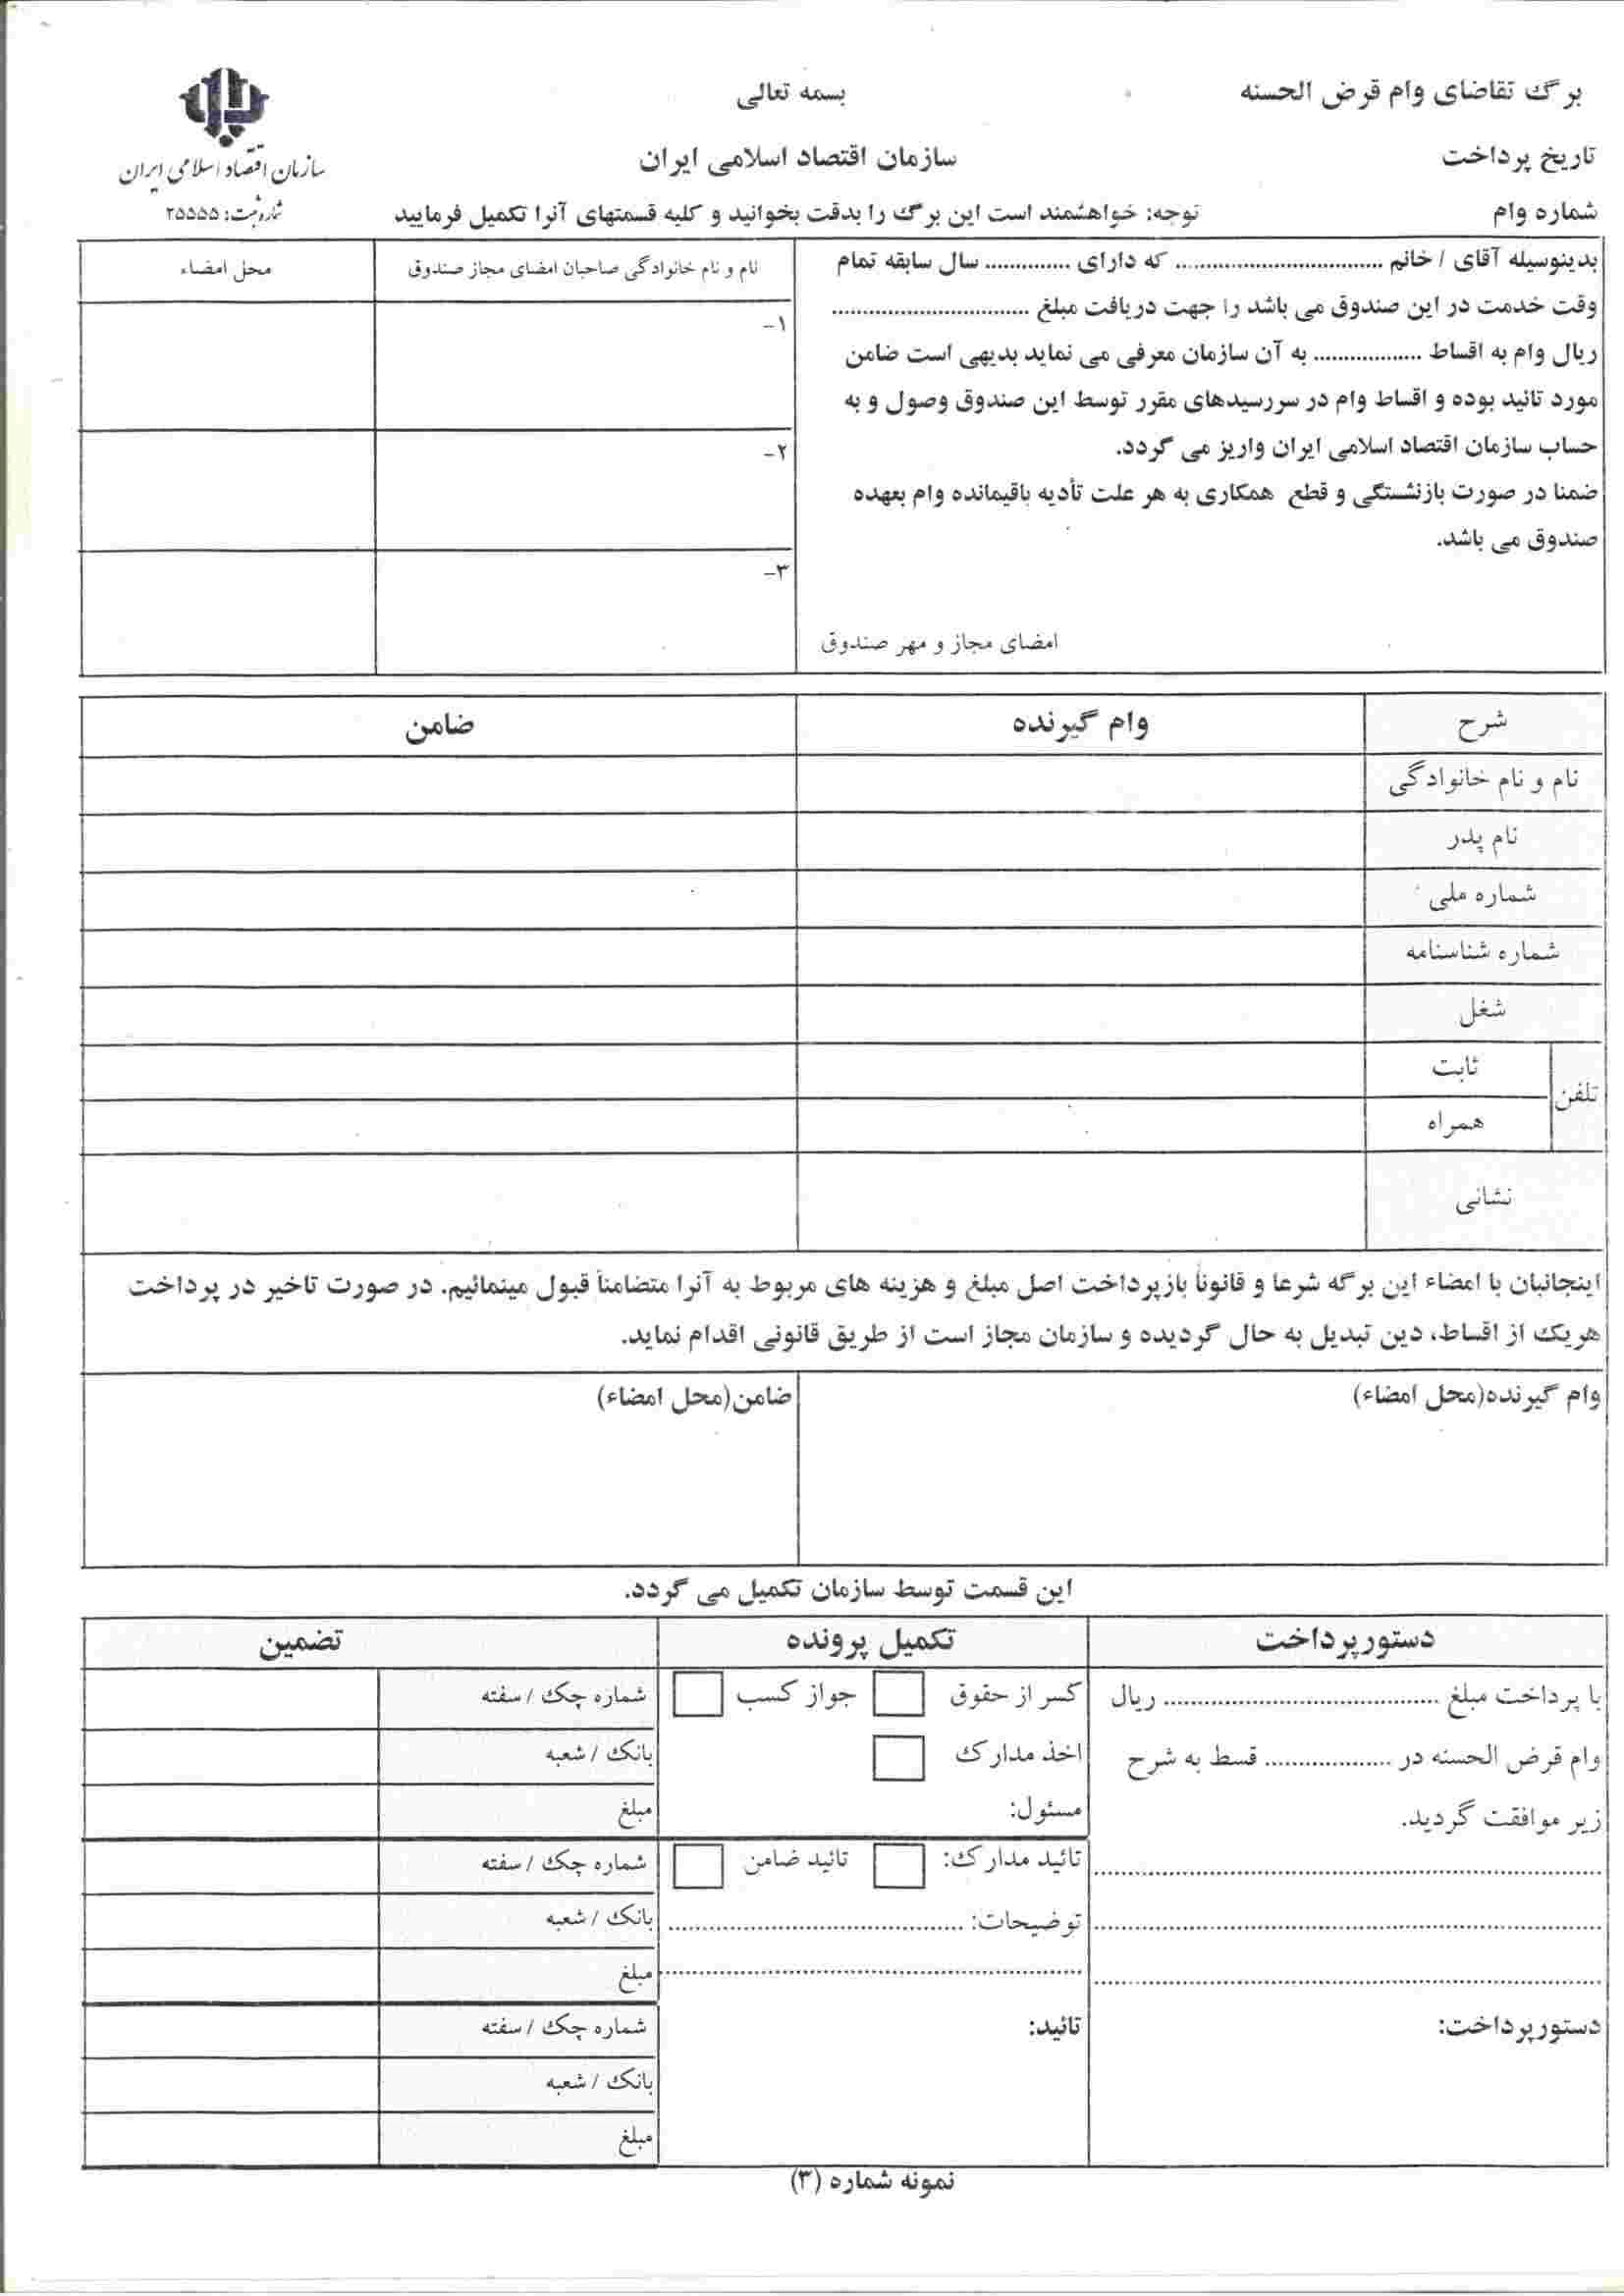 برگ تقاضای وام قرض الحسنه
بسمه تعالی
تاریخ پرداخت
سازمان اقتصاد اسلامی ایران
سازمان اقتصاد اسلامی ایران
شماره وام
توجه: خواهشمند است این برگ را بدقت بخوانید و کلیه قسمتهای آنرا تکمیل فرمایید
شماره ثبت: ۲۵۵۵۵
بدینوسیله آقای / خانم .................................. که دارای .............. سال سابقه تمام
وقت خدمت در این صندوق می باشد را جهت دریافت مبلغ ................................
ریال وام به اقساط .................. به آن سازمان معرفی می نماید بدیهی است ضامن
مورد تائید بوده و اقساط وام در سررسیدهای مقرر توسط این صندوق وصول و به
حساب سازمان اقتصاد اسلامی ایران واریز می گردد.
ضمنا در صورت بازنشستگی و قطع همکاری به هر علت تأدیه باقیمانده وام بعهده
صندوق می باشد.
امضای مجاز و مهر صندوق
نام و نام خانوادگی صاحبان امضای مجاز صندوق
محل امضاء
۱-
۲-
۳-
شرح
وام گیرنده
ضامن
نام و نام خانوادگی
نام پدر
شماره ملی
شماره شناسنامه
شغل
تلفن
ثابت
همراه
نشانی
اینجانبان با امضاء این برگه شرعا و قانوناً بازپرداخت اصل مبلغ و هزینه های مربوط به آنرا متضامناً قبول مینمائیم. در صورت تاخیر در پرداخت
هریک از اقساط، دین تبدیل به حال گردیده و سازمان مجاز است از طریق قانونی اقدام نماید.
وام گیرنده(محل امضاء)
ضامن(محل امضاء)
این قسمت توسط سازمان تکمیل می گردد.
دستورپرداخت
تکمیل پرونده
تضمین
با پرداخت مبلغ ........................................ ریال
وام قرض الحسنه در ................... قسط به شرح
زیر موافقت گردید.
دستورپرداخت:
کسر از حقوق
جواز کسب
اخذ مدارک
مسئول:
تائید مدارک:
تائید ضامن
توضیحات: ............................................
تائید:
شماره چک / سفته
بانک / شعبه
مبلغ
شماره چک / سفته
بانک / شعبه
مبلغ
شماره چک / سفته
بانک / شعبه
مبلغ
نمونه شماره (۳)